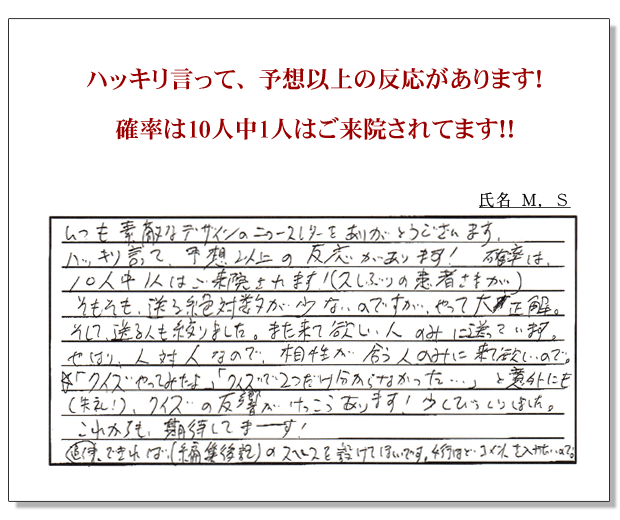 ハッキリ言って、予想以上の反応があります!
確率は10人中1人はご来院されてます!!
氏名 M．S
いつも素敵なデザインのニュースレターをありがとうございます。
ハッキリ言て、予想以上の反応があります! 確率は、
10人中1人はご来院されます!(久しぶりの患者さまが)
そもそも、送る絶対数が少ないのですが、やって大正解。
そして、送る人も絞りました。また来て欲しい人のみに送ています。
やはり、人対人なので、相性が合う人のみに来て欲しいので。
☆「クイズやってみたよ」「クイズで2つだけ分からなかった…」と意外にも
(失礼!)、クイズの反響がけっこうあります! 少しびっくりしました。
これからも、期待してまーす!
追伸、できれば、(編集後記)のスペースを設けてほしいです。4行ほど、コメントを入れたいので。